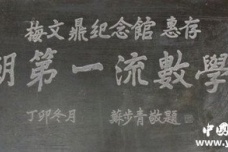 梅文鼎纪念館 惠存
朝第一流數學
丁卯冬月 蘇步青敬題
中國